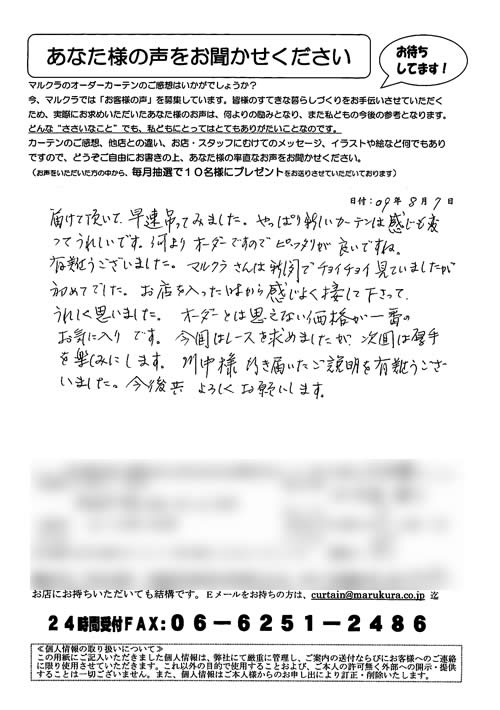 あなた様の声をお聞かせください
お待ち
してます！
マルクラのオーダーカーテンのご感想はいかがでしょうか？
今、マルクラでは「お客様の声」を募集しています。皆様のすてきな暮らしづくりをお手伝いさせていただく
ため、実際にお求めいただいたあなた様のお声は、何よりの励みとなり、また私どもの今後の参考となります。
どんな“ささいなこと”でも、私どもにとってはとてもありがたいことなのです。
カーテンのご感想、他店との違い、お店・スタッフにむけてのメッセージ、イラストや絵など何でもあり
ですので、どうぞご自由にお書きの上、あなた様の率直なお声をお聞かせください。
（お声をいただいた方の中から、毎月抽選で１０名様にプレゼントをお送りさせていただいております）
日付：09年8月9日
届けて頂いて、早速吊ってみました。やっぱり新しいカーテンは感じも変
ってうれしいです。何よりオーダーですのでピッタリが良いですね。
有難うございました。マルクラさんは新聞でチョイチョイ見ていましたが
初めてでした。お店を入った時から感じよく接して下さって、
うれしく思いました。オーダーとは思えない価格が一番の
お気に入りです。今回はレースを求めましたが、次回は厚手
を楽しみにします。川中様行き届いたご説明を有難うござ
いました。今後共よろしくお願いします。
お店にお持ちいただいても結構です。Ｅメールをお持ちの方は、curtain@marukura.co.jp 迄
２４時間受付ＦＡＸ：０６－６２５１－２４８６
≪個人情報の取り扱いについて≫
この用紙にご記入いただきました個人情報は、弊社にて厳重に管理し、ご案内の送付ならびにお客様へのご連絡
に限り使用させていただきます。これ以外の目的で使用することおよび、ご本人の許可無く外部への開示・提供
することは一切ございません。また、個人情報はご本人様からのお申し出により訂正・削除いたします。